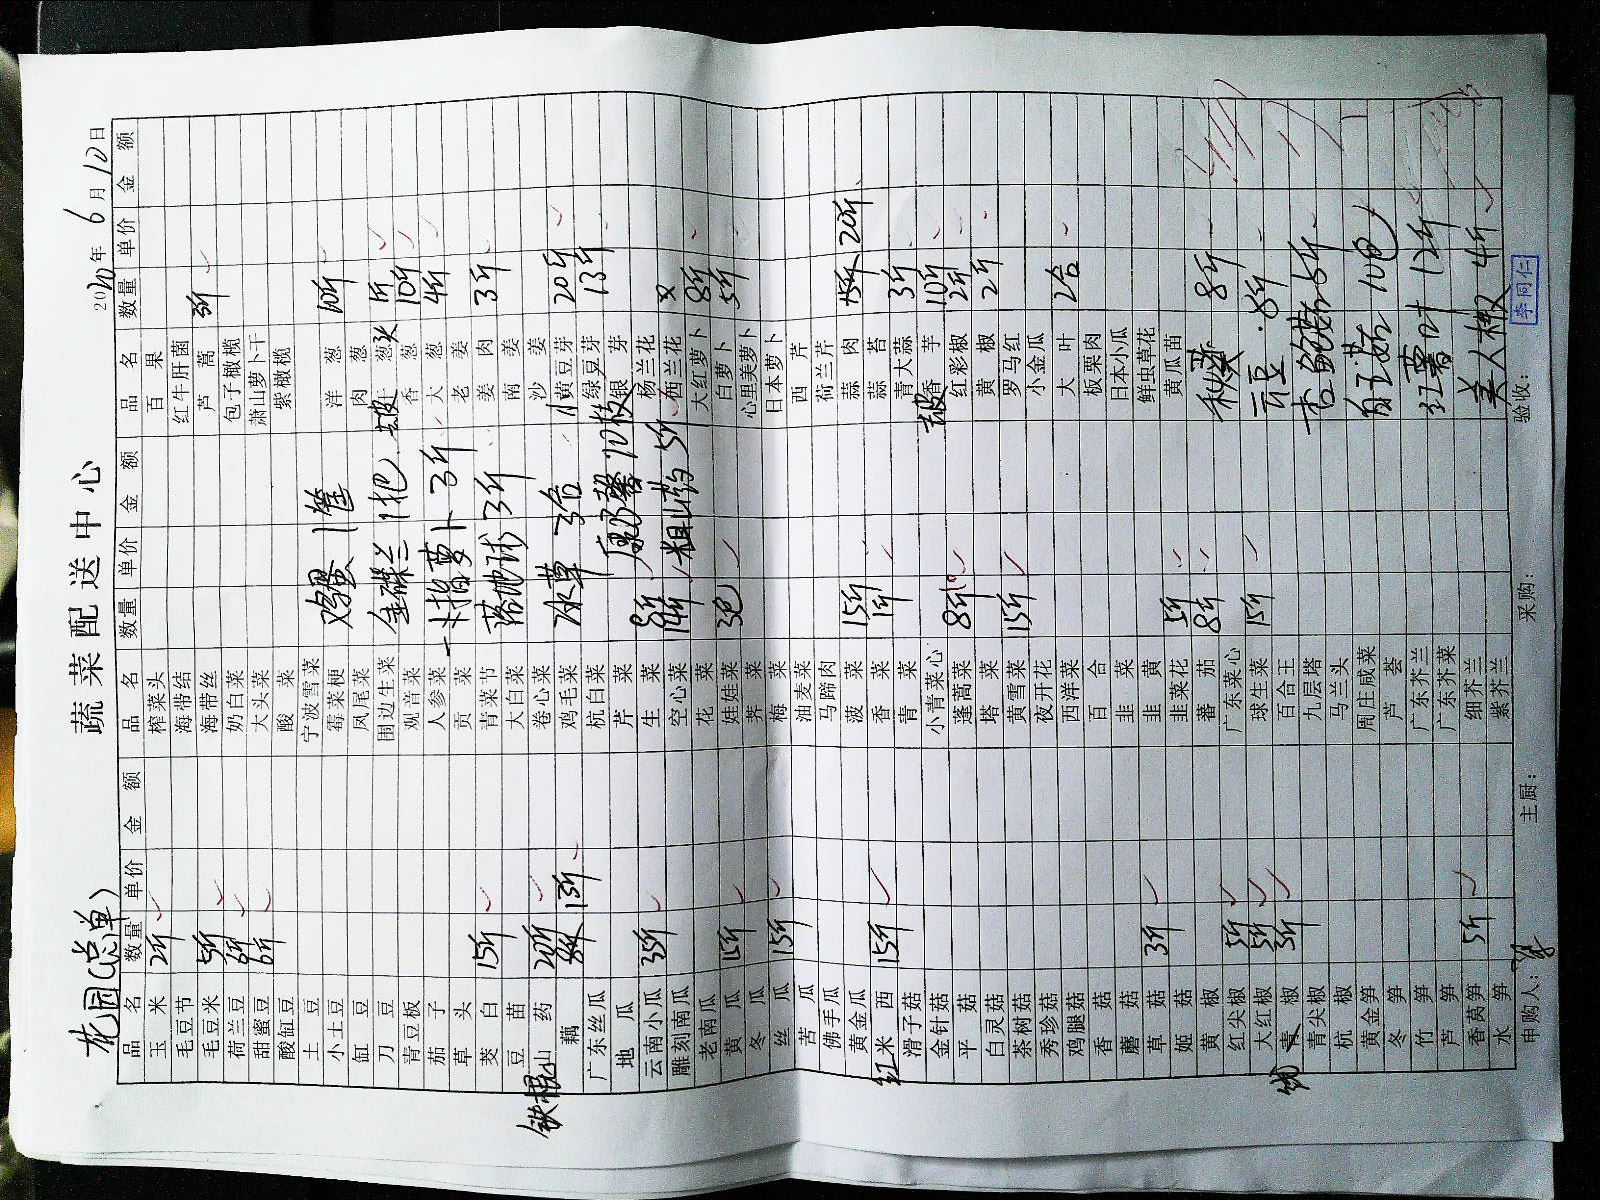 蔬菜配送中心
花园(总单)
2020年6月10日
品名 数量 单价 金额 品名 数量 单价 金额 品名 数量 单价 金额
玉米 2斤 榨菜头 百果
毛豆节 海带结 红牛肝菌
毛豆米 5斤 海带丝 芦蒿 3斤
荷兰豆 6斤 奶白菜 包子橄榄
甜蜜豆 6斤 大头菜 萧山萝卜干
酸缸豆 酸菜 紫橄榄
土豆 宁波雪菜
小土豆 霉菜梗 鸡蛋 1筐 洋葱 10斤
缸豆 凤尾菜 肉葱
刀豆 围边生菜 金碟兰 1把 葱 1斤
青豆板 观音菜 香葱 10斤
茄子 人参菜 一卡指萝卜 3斤 大葱 4斤
草头 贡菜 老姜
茭白 15斤 青菜节 落地球 3斤 姜肉 3斤
豆苗 大白菜 南姜
铁棍山药 20斤 卷心菜 沙姜
藕 13斤 鸡毛菜 冰草 3合 黄豆芽 20斤
广东丝瓜 杭白菜 绿豆芽 13斤
地瓜 芹菜 康乃馨 10枝 银芽
云南小瓜 35斤 生菜 8斤 杨兰花
雕刻南瓜 空心菜 14斤 粗山药 5斤 西兰花
老南瓜 花菜 大红萝卜 8斤
黄瓜 15斤 娃娃菜 3包 白萝卜 5斤
冬瓜 荠菜 心里美萝卜
丝瓜 15斤 梅菜 日本萝卜
苦瓜 油麦菜 西芹
佛手瓜 马蹄肉 荷兰芹
黄金瓜 菠菜 15斤 蒜肉 20斤
红米西 15斤 香菜 1斤 蒜苔
滑子菇 青菜 青大蒜 3斤
金针菇 小青菜心 去皮香芋 10斤
平菇 蓬蒿菜 8斤 红彩椒 2斤
白灵菇 塔菜 黄椒 2斤
茶树菇 黄雪菜 15斤 罗马红
秀珍菇 夜开花 小金瓜
鸡腿菇 西洋菜 大叶 2合
香菇 百合 板栗肉
蘑菇 韭菜 日本小瓜
草菇 3斤 韭黄 鲜虫草花
姬菇 韭菜花 5斤 黄瓜苗
黄椒 蕃茄 8斤 秋葵 8斤
红尖椒 5斤 广东菜心
大红椒 5斤 球生菜 15斤 云豆 8斤
青椒 3斤 百合王
青尖椒 九层塔 杏鲍菇 6斤
杭椒 马兰头
黄金笋 周庄咸菜 白玉菇 10包
冬笋 芦荟
竹笋 广东芥兰 红薯叶 12斤
芦笋 广东芥菜
香莴笋 5斤 细芥兰 美人椒 4斤
水笋 紫芥兰
申购人: 主厨: 采购: 验收: 李同仁